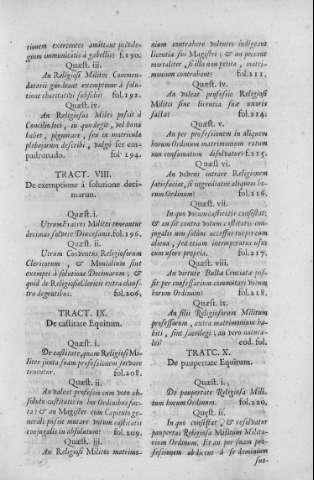 tionem exercentes amittant jus do-
gum immunitatis à gabellis: f.190.
Quæst. iij.
An Religiosi Milites Commen-
datarij gaudeant exemptione à solu-
tione charitativi subsidii fol.192.
Quæst. iv.
An Religiosus Miles possit à
Concilio, in quo degit, vel bona
habet, pignorare, seu ex matricula
plebejorum describi, vulgò ser em-
padronado. fol. 194.
TRACT. VIII.
De exemptione à solutione deci-
marum.
Quæst. i.
Utrum Fratres Milites teneantur
decimas solvere Diocesano. fol.196.
Quæst. ii.
Utrum Conventus Religiosorum
Clericorum, & Monialium sint
exempti à solutione Decimarum, &
quid de Religiosis Clericis extra claus-
tro degentibus. fol.206.
TRACT. IX.
De castitate Equitum.
Quæst. i.
De castitate, quam Religiosi Mi-
lites juxta suam professionem servare
tenentur. fol.208.
Quæst. ii.
An valeat professio cum voto ab-
soluto castitatis in his Ordinibus fac-
ta: & an Magister cum Capitulo ge-
nerali possit mutare votum castitatis
conjugalis in absolutum: fol.209.
Quæst. iij.
An Religiosi Milites matrimo-
nium contrahere volentes indigeant
licentia sui Magistri; & an peccent
mortaliter, si illa non petita, matri-
monium contrahant: fol.211.
Quæst. iv.
An valeat professio Religiosi
Militis sine licentia suæ uxoris
facta: fol.214.
Quæst. v.
An per professionem in aliquem
horum Ordinum matrimonium ratum
non consumatum dissolvatur: f.215.
Quæst vi.
An volens intrare Religionem
satisfaciat, si ingrediatur aliquem ho-
rum Ordinum: fol.216.
Quæst. vii.
In quo votum castitatis consistat;
& an sit contra votum castitatis con-
jugalis non solùm accessus turpis cum
aliena, sed etiam intemperatus usus
cum uxore propria. fol.217.
Quæst. viii.
An virtute Bullæ Cruciatæ pos-
sit per confessarium commutari votum
horum Ordinum: fol.218.
Quæst. ix.
An filii Religiosorum Militum
professorum, extra matrimonium ha-
biti, sint sacrilegi; an verò natura-
les: eod. fol.
TRATC. X.
De paupertate Equitum.
Quæst. i.
De paupertate Religiosa Mili-
tum horum Ordinum. fol.220.
Quæst. ii.
In quo consistat, & resolvatur
paupertas Religiosa Militum Milita-
rium Ordinum. Et an per suam pro-
fessionem abdicent à se dominium
suo-